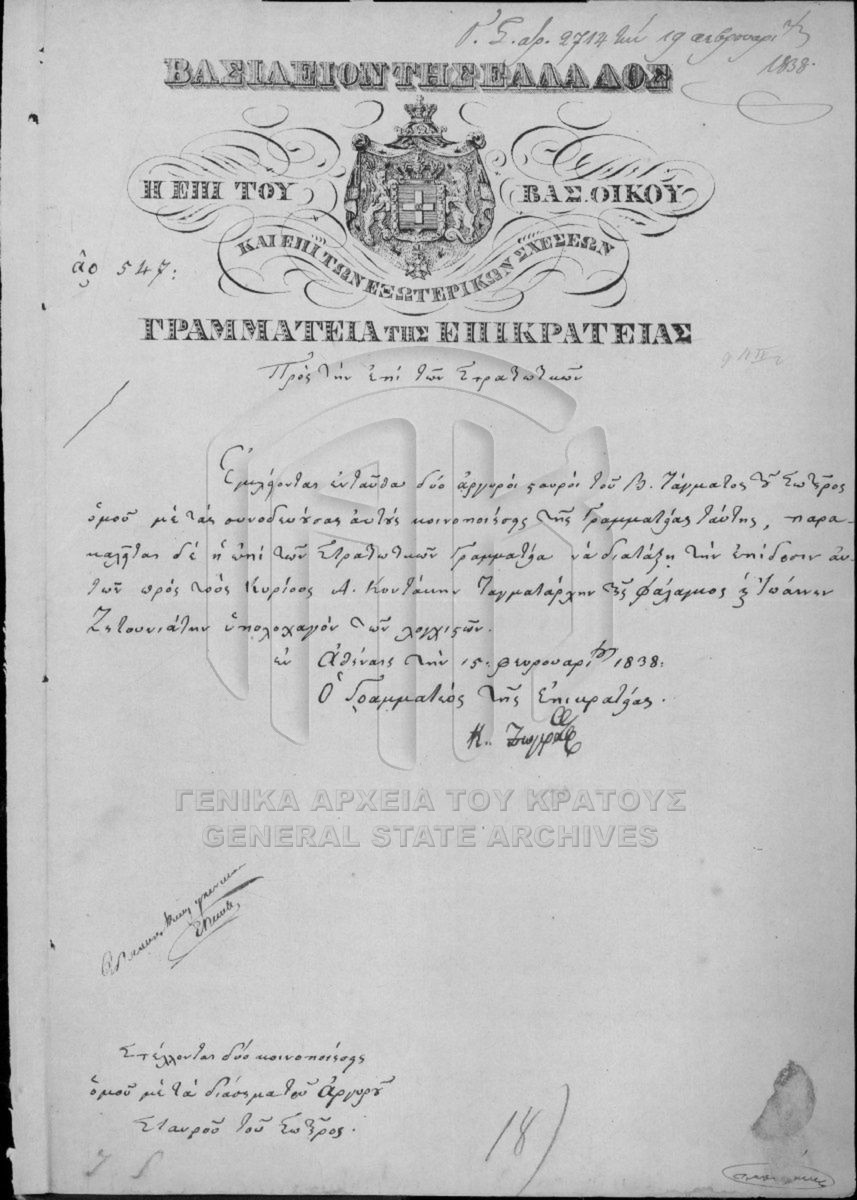 αρ. 2714 την 19 Φεβρουαρί
1838.
ΒΑΣΙΛΕΙΟΝ ΤΗΣ ΕΛΛΑΔΟΣ
Η ΕΠΙ ΤΟΥ ΒΑΣ. ΟΙΚΟΥ
ΚΑΙ ΕΠΙ ΤΩΝ ΕΞΩΤΕΡΙΚΩΝ ΣΧΕΣΕΩΝ
ἀρ 547:
ΓΡΑΜΜΑΤΕΙΑ ΤΗΣ ΕΠΙΚΡΑΤΕΙΑΣ
Πρὸς τὴν ἐπὶ τῶν Στρατιωτικῶν
ἐνταῦθα δύο ἀργυροῖ σταυροὶ τοῦ Β. Τάγματος τοῦ Σωτῆρος
ὁμοῦ μὲ τὰς συνοδευούσας αὐτοὺς κοινοποιήσεις τῆς Γραμματείας ταύτης, παρα-
καλεῖται δὲ ἡ ἐπὶ τῶν Στρατιωτικῶν Γραμματεία νὰ διατάξῃ τὴν ἐπίδοσιν αὐ-
τῶν πρὸς τοὺς Κυρίους Α. Κοντάκην Ταγματάρχην τῆς φάλαγγος καὶ Ἰωάννην
Ζητουνιάτην ὑπολοχαγὸν τῶν λογχιστῶν.
ἐν Ἀθήναις τὴν 15. Φευρουαρί 1838.
Ὁ Γραμματεὺς τῆς Ἐπικρατείας.
Κ. Ζωγράφος
ΓΕΝΙΚΑ ΑΡΧΕΙΑ ΤΟΥ ΚΡΑΤΟΥΣ
GENERAL STATE ARCHIVES
Στέλλονται δύο κοινοποιήσεις
ὁμοῦ μὲ τὰ διάσημα τοῦ Ἀργυροῦ
Σταυροῦ τοῦ Σωτῆρος.
18)